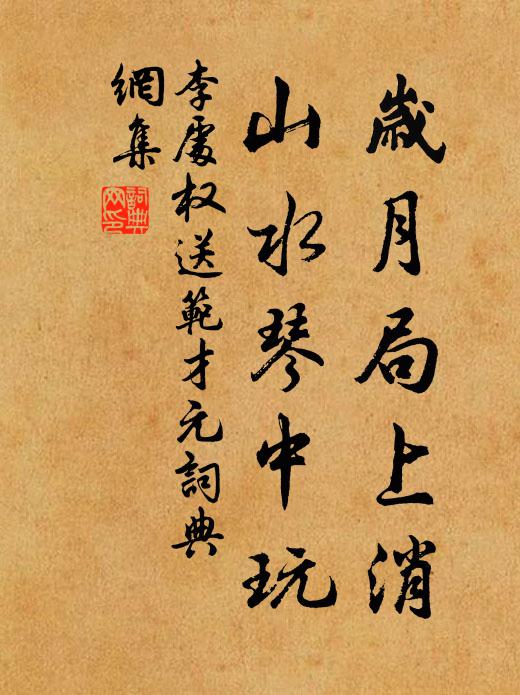 歲月局上消
山水琴中玩
李處权送範才元詞典
網集
詞典網印